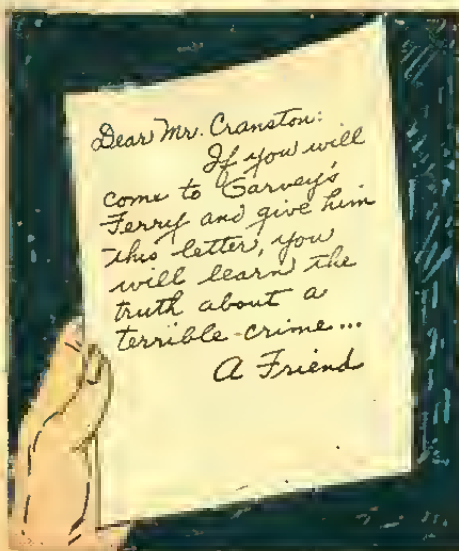 Dear Mr. Cranston:
If you will
come to Garvey's
Ferry and give him
this letter, you
will learn the
truth about a
terrible crime...
A Friend